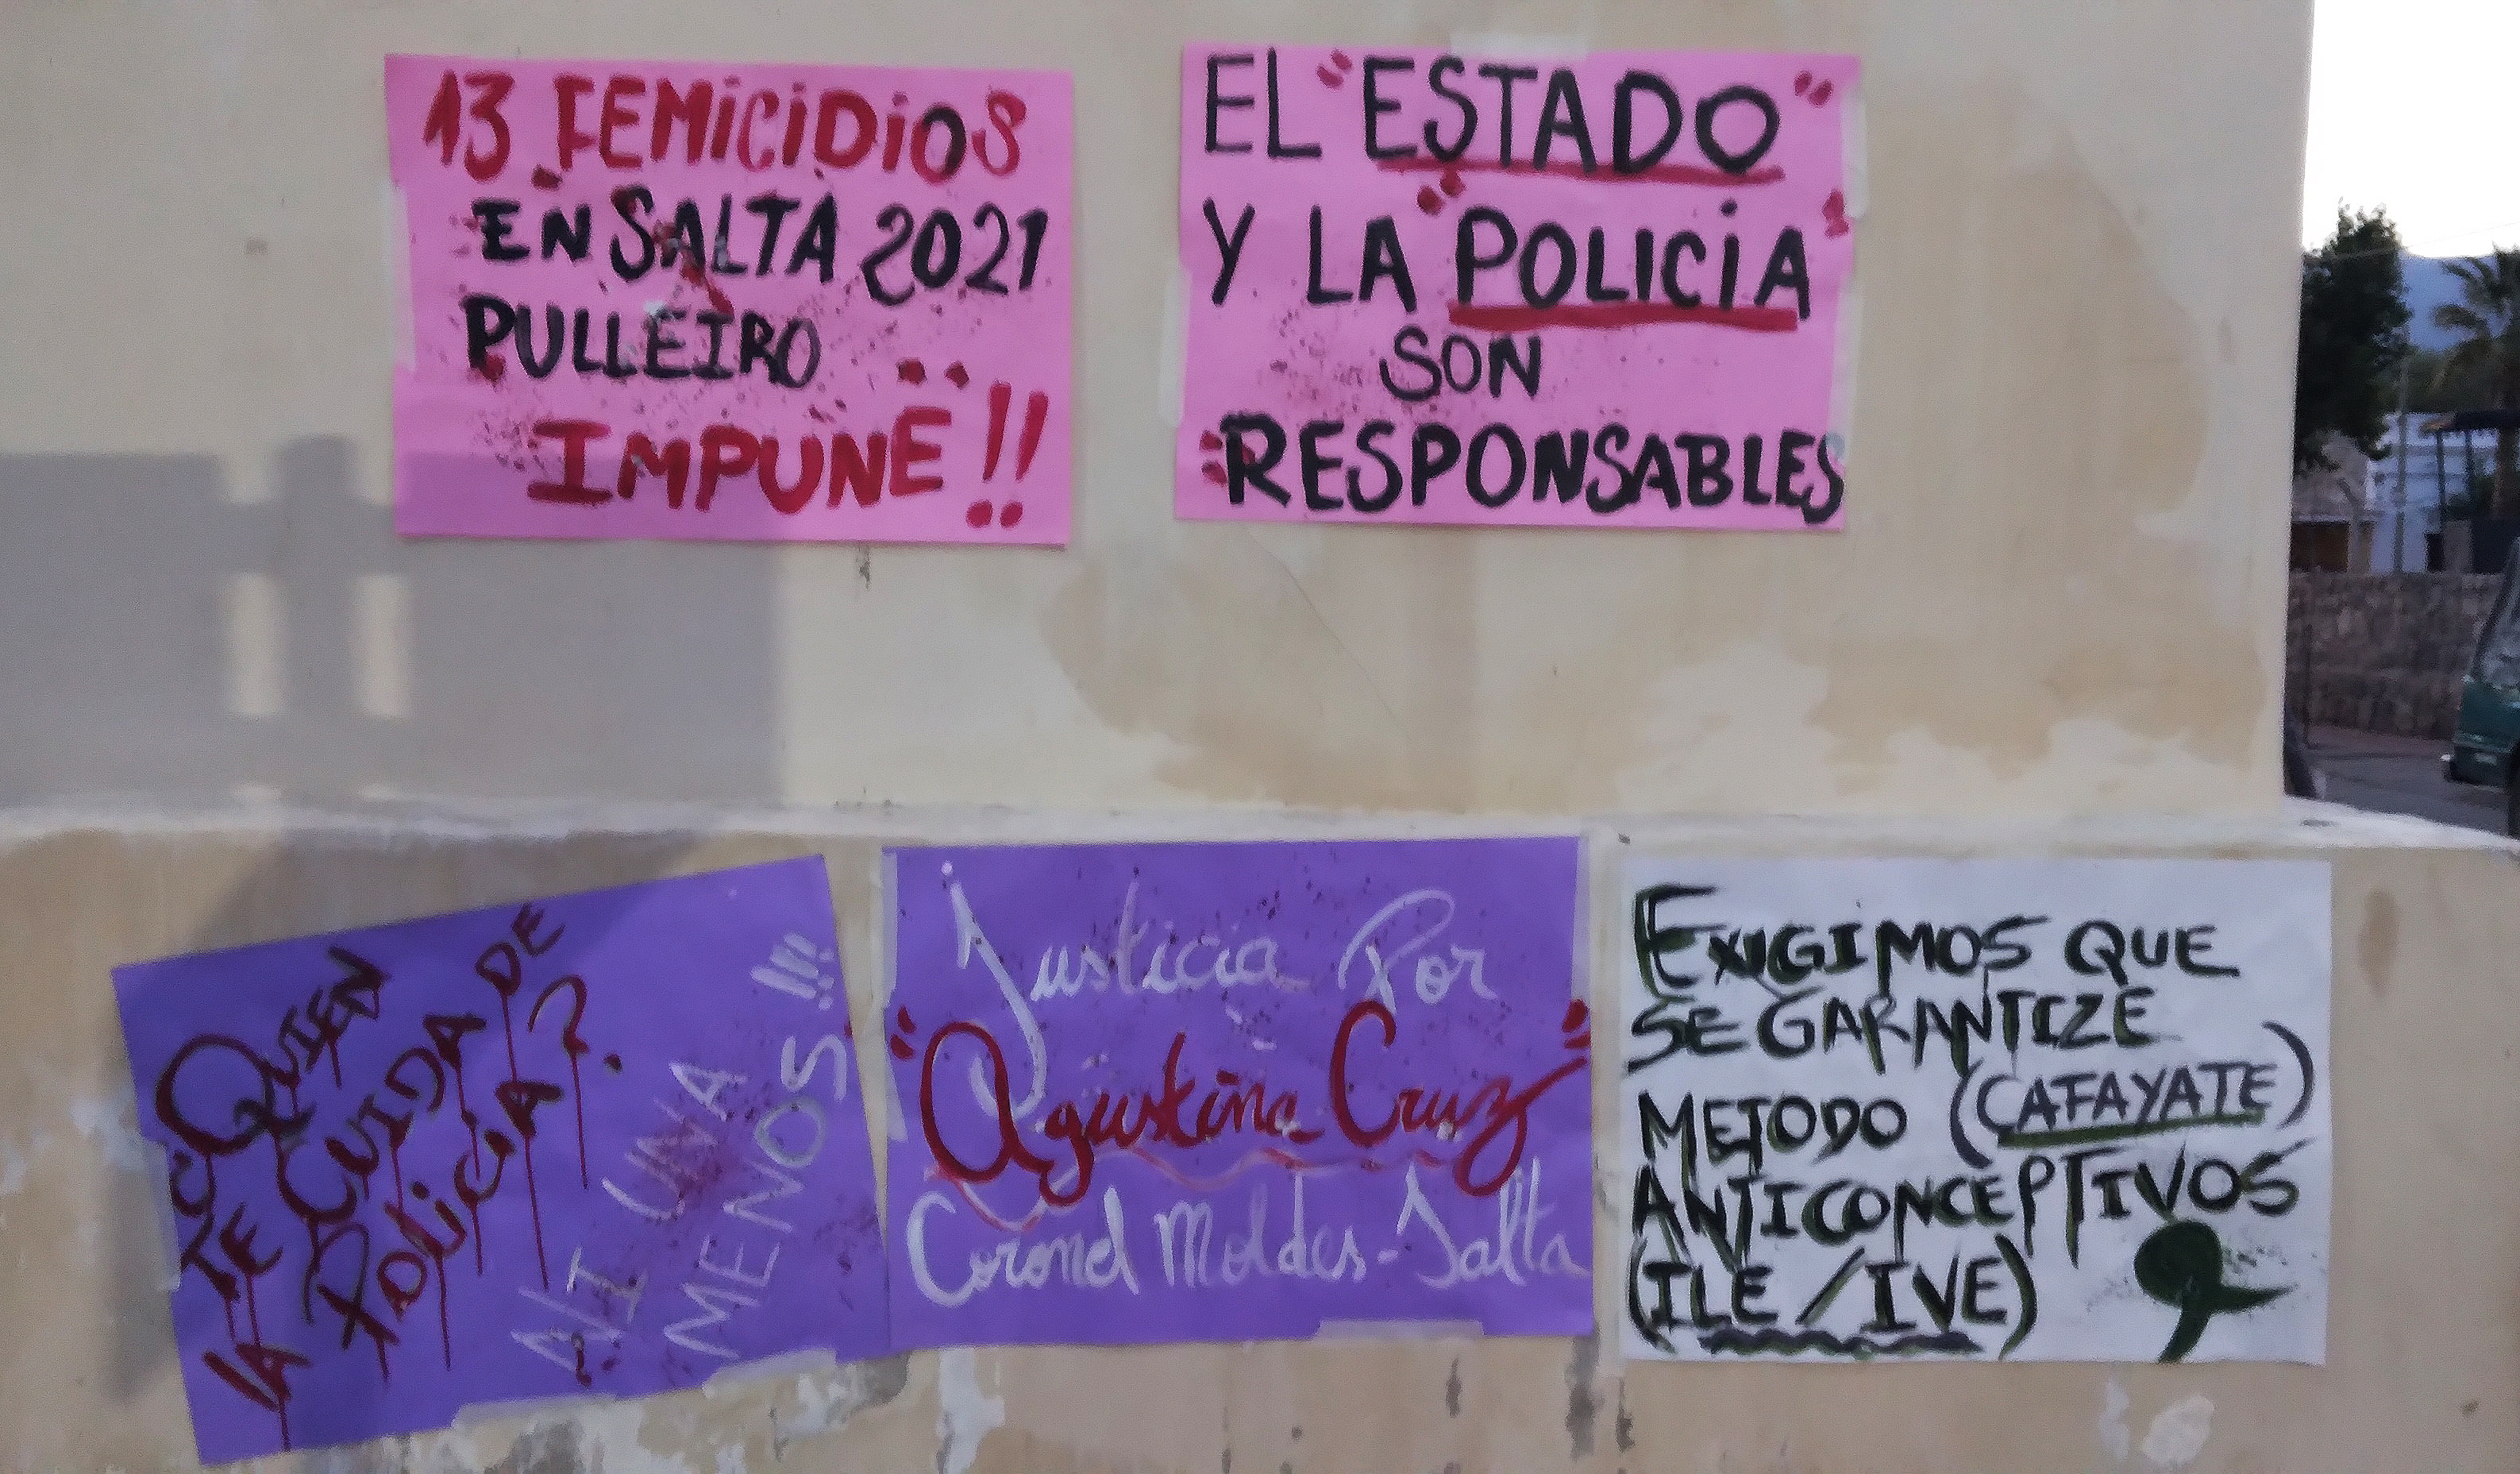 13 FEMiCiDiOS
EN SALTA 2021
PULLEIRO
IMPUNE!!
EL "ESTADO"
Y LA "POLICiA"
SON
"RESPONSABLES
¿QUIEN
TE CUIDA DE
LA POLiCiA?
NI UNA
MENOS!!!
Justicia Por
"Agustina Cruz"
Coronel Moldes-Salta
EXIGIMOS QUE
SE GARANTIZE
METODO (CAFAYATE)
ANTICONCEPTIVOS
(ILE/IVE)